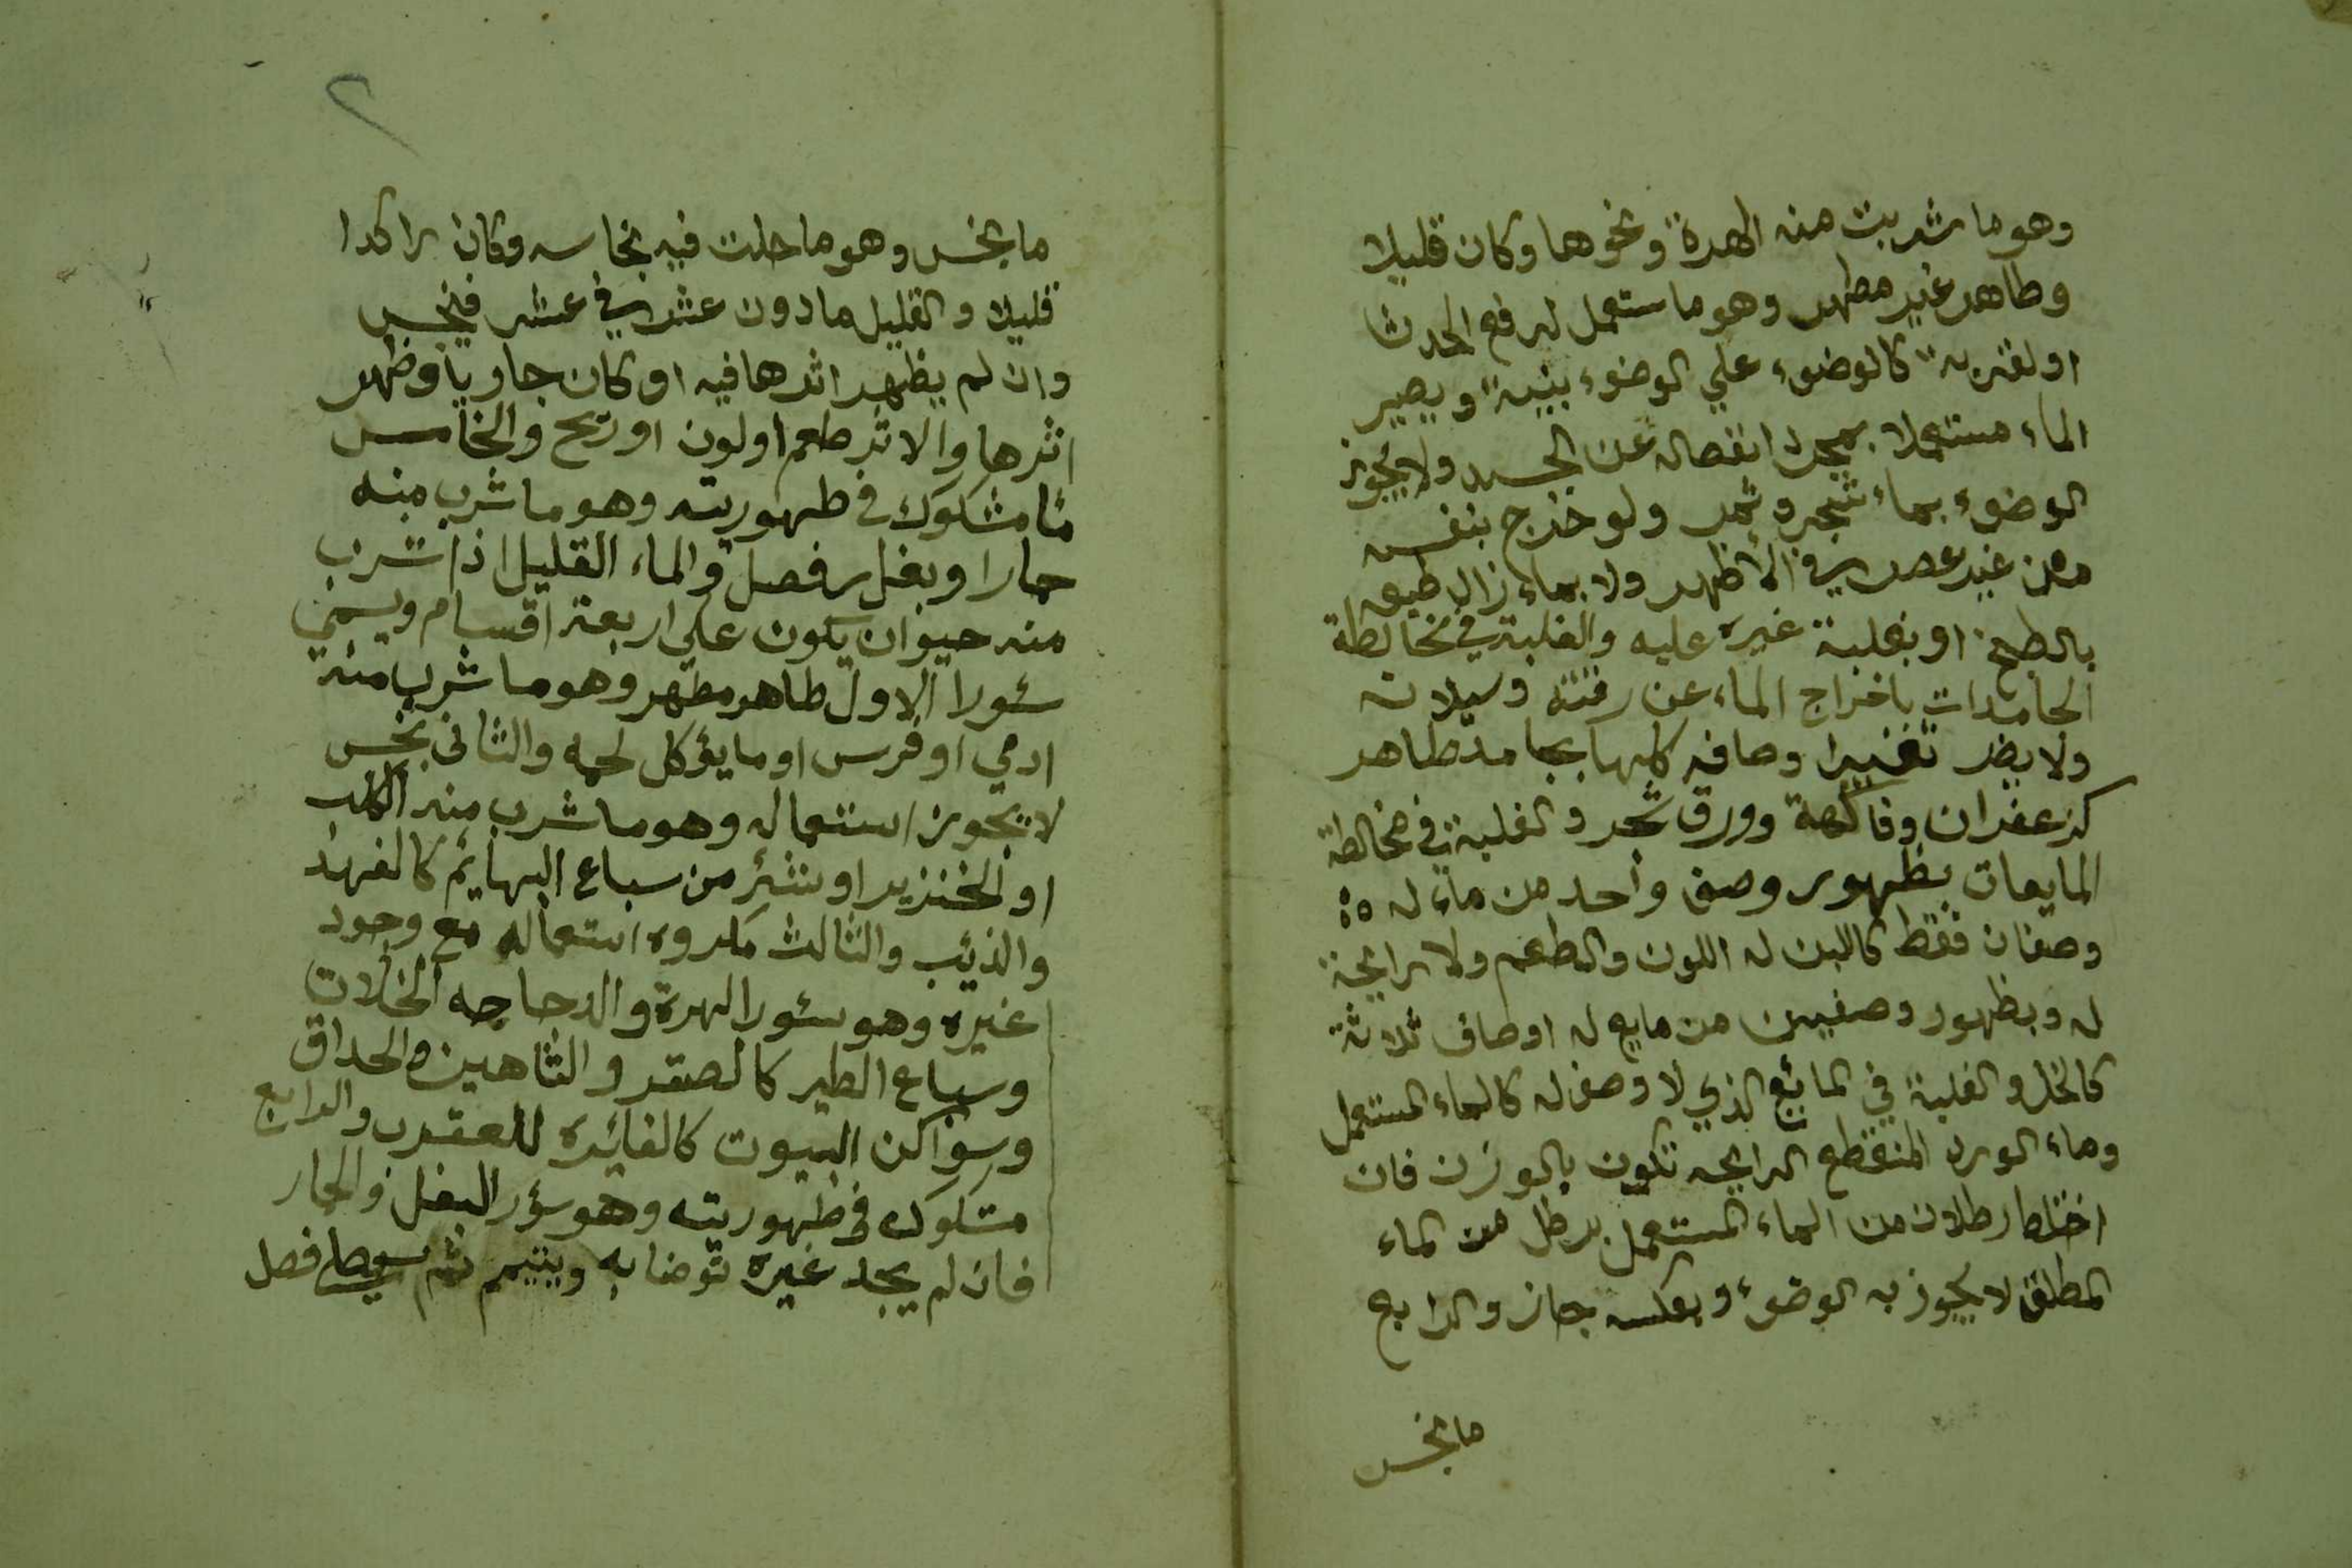 وهو ما شربت منه الهرة ونحوها وكان قليلا
وطاهر غير مطهر وهو ما ستعمل لرفع الحدث
او لقربة كالوضوء علي الوضوء بنية ويصير
الماء مستعملا بمجرد انفصاله عن الجسد ولا يجوز
الوضوء بماء شجر وثمر ولو خرج بنفسه
من غير عصر في الاظهر ولا بماء زال طبعه
بالطبخ او بغلبة غيره عليه والغلبة في مخالطة
الجامدات باخراج الماء عن رقته وسيلانه
ولا يضر تغيير اوصافه كلها بجامد طاهر
كزعفران وفاكهة وورق شجر والغلبة في مخالطة
المايعات بظهور وصف واحد من ماء له
وصفان فقط كاللبن له اللون والطعم ولا رايحة
له وبظهور وصفين من مايع له اوصاف ثلاثة
كالخل والغلبة في المائع الذي لا وصف له كالماء المستعمل
وماء الورد المنقطع الرايحه تكون بالوزن فان
اختلط رطلان من الماء المستعمل برطل من الماء
المطلق لا يجوز به الوضوء وبعكسه جاز والرابع
ما نجس
٢
ما نجس وهو ما حلت فيه نجاسه وكان راكدا
قليلا والقليل ما دون عشر في عشر فينجس
وان لم يظهر اثرها فيه او كان جاريا وظهر
اثرها والاثر طعم او لون او ريح والخامس
ما مشكوك في طهوريته وهو ما شرب منه
حمار او بغل فصل والماء القليل اذا شرب
منه حيوان يكون علي اربعة اقسام ويسمي
سئورا الاول طاهر مطهر وهو ما شرب منه
ادمي او فرس او ما يؤكل لحمه والثاني نجس
لا يجوز استعماله وهو ما شرب منه الكلب
او الخنزير او شئ من سباع البهايم كالفهد
والذيئب والثالث مكروه استعماله مع وجود
غيره وهو سئور الهرة والدجاجه المخلات
وسباع الطير كالصقر والشاهين والحداق
وسواكن البيوت كالفايره للعقرب والرابع
مشكوك في طهوريته وهو سؤر البغل والحمار
فان لم يجد غيره توضا به ويتيمم ثم يصلي فصل